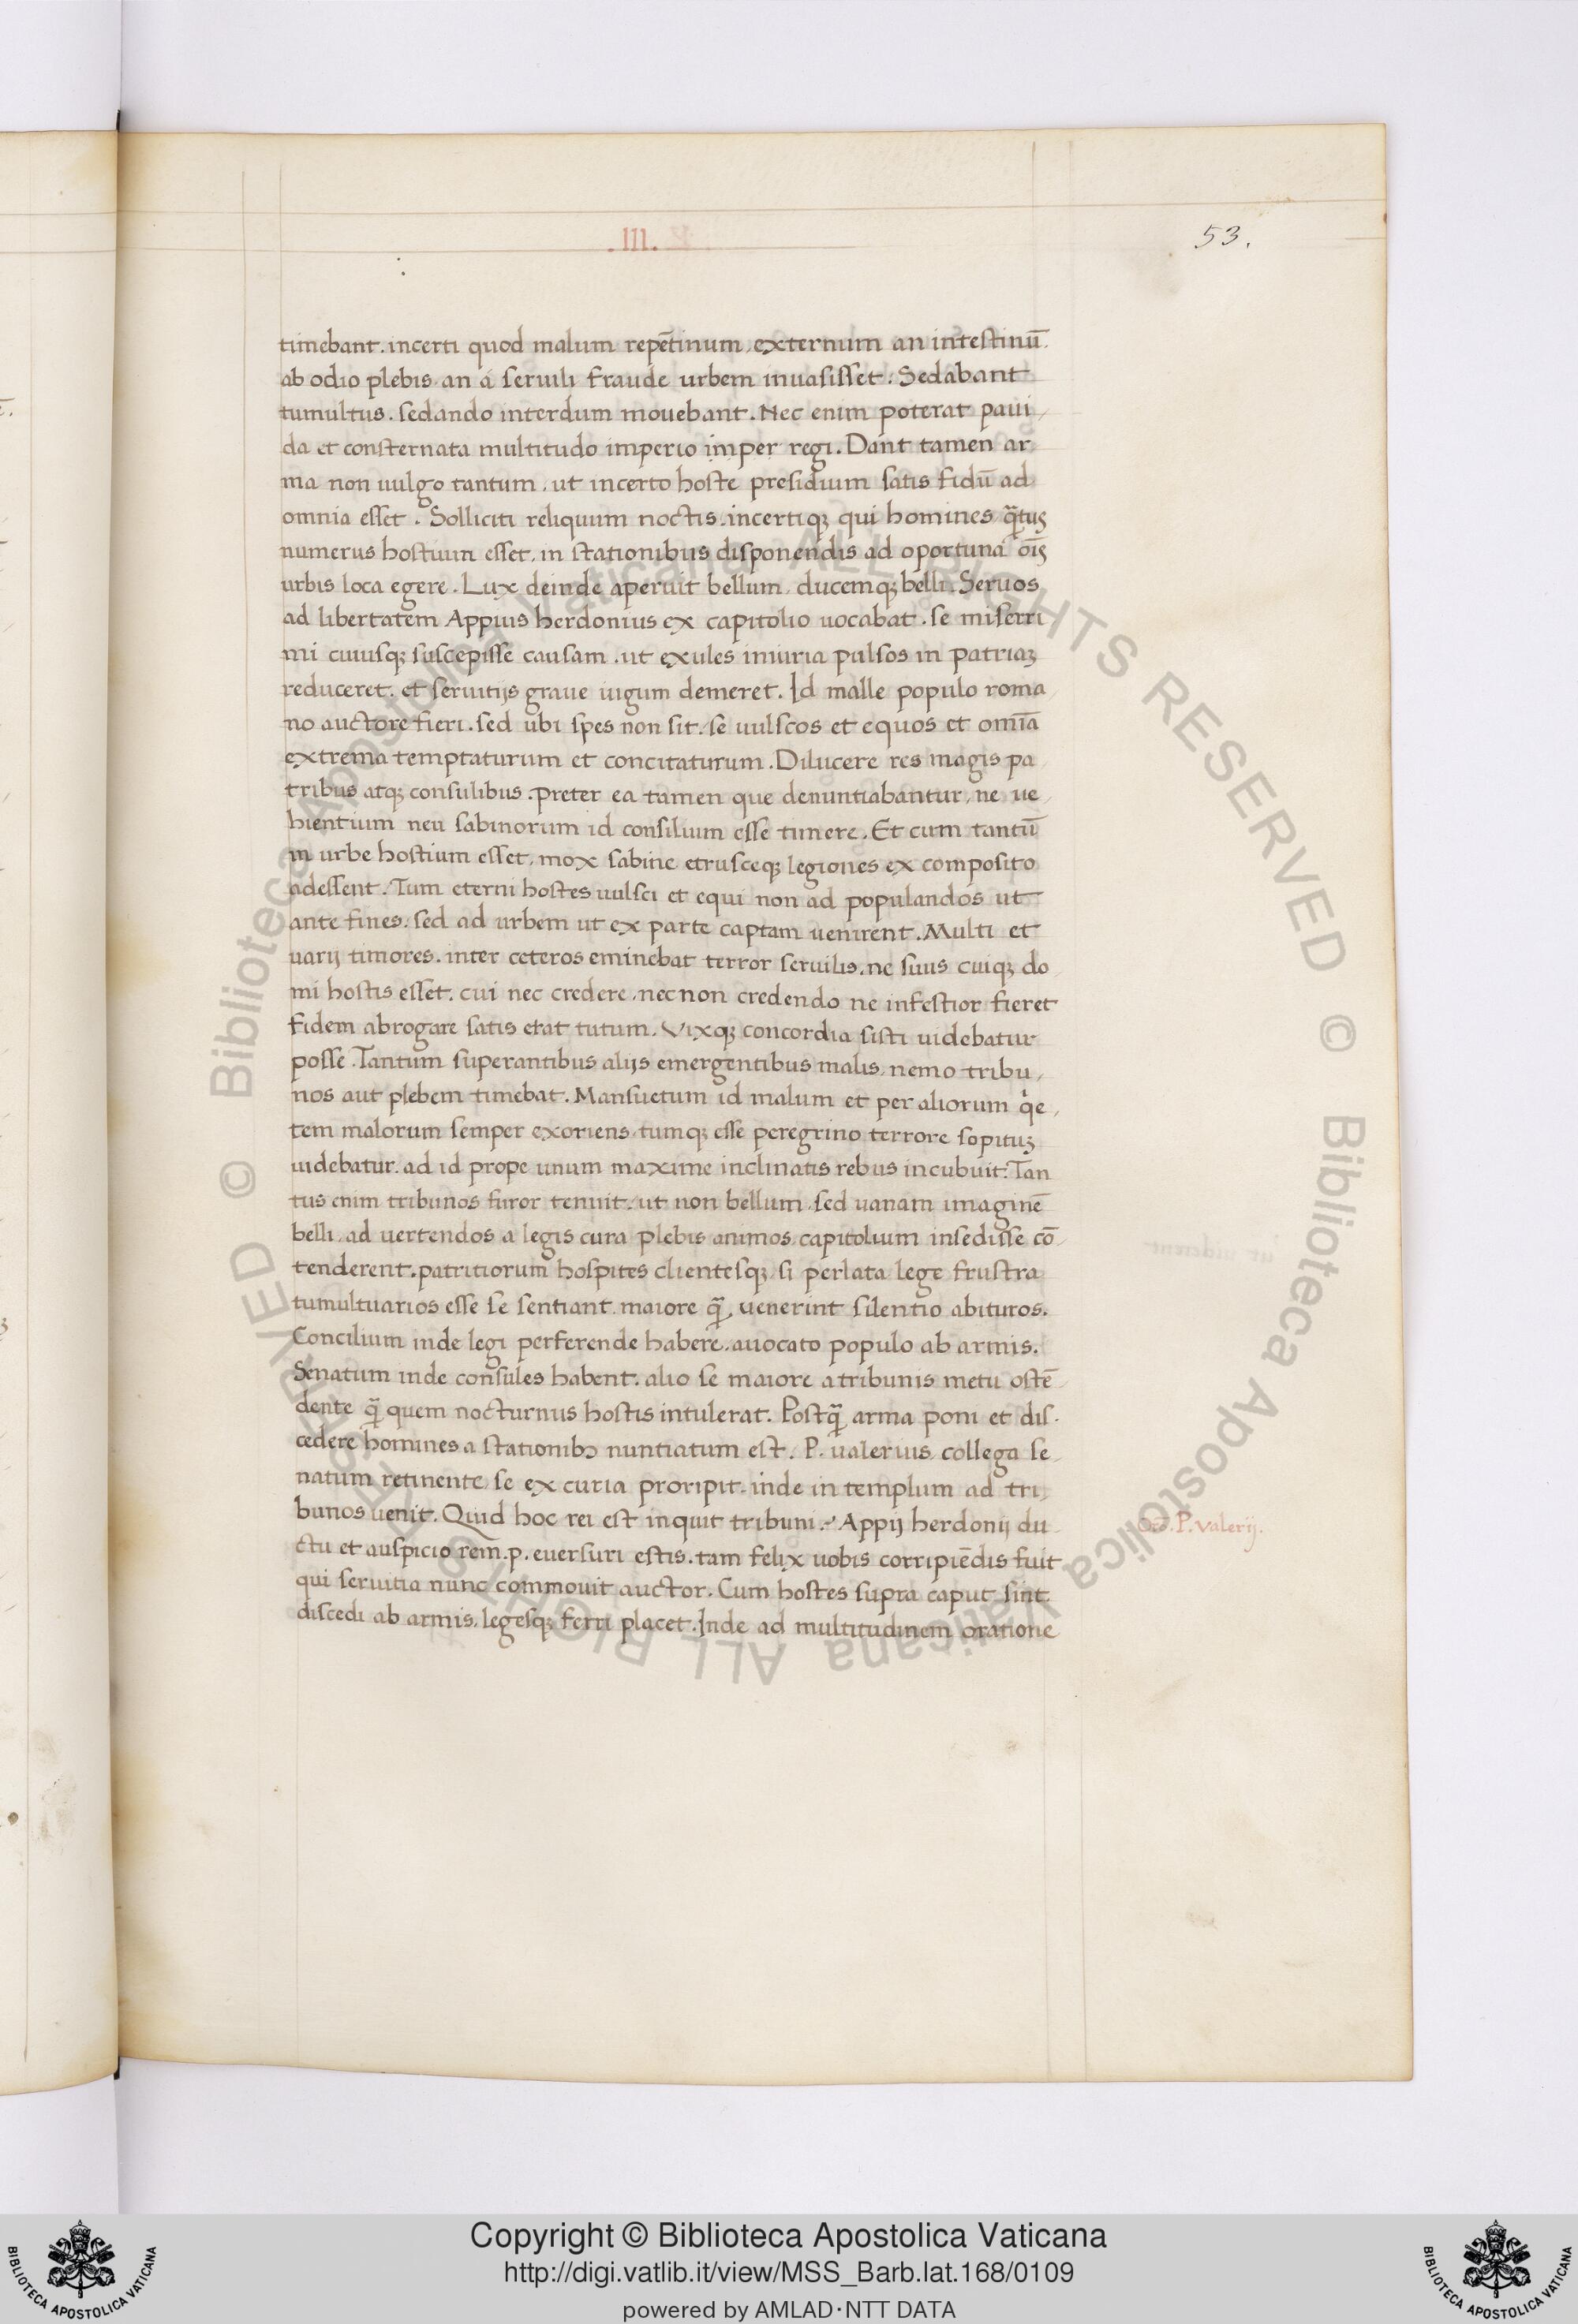 .III.
53.
timebant. incerti quod malum repētinum, externum an intestinū.
ab odio plebis an a seruili fraude urbem inuasisset. Sedabant
tumultus. sedando interdum mouebant. Nec enim poterat paui,
da et consternata multitudo imperio imper regi. Dant tamen ar
ma non uulgo tantum, ut incerto hoste presidium satis fidū ad
omnia esset. Solliciti reliquum noctis. incertiqꝫ qui homines, q̃tusꝫ
numerus hostium esset, in stationibus disponendis ad oportuna oīꝫ
urbis loca egere. Lux deinde aperuit bellum, ducemqꝫ belli. Seruos
ad libertatem Appius herdonius ex capitolio uocabat. se miserri
mi cuiusqꝫ suscepisse causam. ut exules iniuria pulsos in patriaꝫ
reduceret. et seruitijs graue iugum demeret. Id malle populo roma
no auctore fieri. sed ubi spes non sit. se uulscos et equos et omīa
extrema temptaturum et concitaturum. Dilucere res magis pa
tribus atqꝫ consulibus. preter ea tamen que denuntiabantur, ne ue,
hientium neu sabinorum id consilium esse timere. Et cum tantū
in urbe hostium esset, mox sabine etrusceqꝫ legiones ex composito
adessent. Tum eterni hostes uulsci et equi non ad populandos ut
ante fines. sed ad urbem ut ex parte captam uenirent. Multi et
uarij timores. inter ceteros eminebat terror seruilis. ne suus cuiqꝫ do
mi hostis esset. cui nec credere, nec non credendo ne infestior fieret
fidem abrogare satis erat tutum. Vixqꝫ concordia sisti uidebatur
posse. Tantum superantibus alijs emergentibus malis, nemo tribu,
nos aut plebem timebat. Mansuetum id malum et per aliorum q̇e,
tem malorum semper exoriens, tumqꝫ esse peregrino terrore sopituꝫ
uidebatur. ad id prope unum maxime inclinatis rebus incubuit. Tan
tus enim tribunos furor tenuit. ut non bellum. sed uanam imaginē
belli, ad uertendos a legis cura plebis animos, capitolium insedisse cō,
tenderent. patritiorum hospites clientesqꝫ si perlata lege frustra
tumultuarios esse se sentiant. maiore q̃ uenerint silentio abituros.
Concilium inde legi perferende habere. auocato populo ab armis.
Senatum inde consules habent. alio se maiore a tribunis metu ostē
dente q̃ quem nocturnus hostis intulerat. Postq̃ arma poni et dis.
cedere homines a stationibꝫ nuntiatum est. P. ualerius, collega se,
natum retinente, se ex curia proripit. inde in templum ad tri,
bunos uenit. Quid hoc rei est inquit tribuni. Appij herdonij du
ctu et auspicio rem. p. euersuri estis. tam felix uobis corripiēdis fuit
qui seruitia nunc commouit auctor. Cum hostes supra caput sint.
discedi ab armis. legesqꝫ ferri placet. Inde ad multitudinem oratione
Oro. P. valerij.
© Biblioteca Apostolica Vaticana ALL RIGHTS RESERVED
© Biblioteca Apostolica Vaticana ALL RIGHTS RESERVED
BIBLIOTECA APOSTOLICA VATICANA
Copyright © Biblioteca Apostolica Vaticana
http://digi.vatlib.it/view/MSS_Barb.lat.168/0109
powered by AMLAD·NTT DATA
BIBLIOTECA APOSTOLICA VATICANA